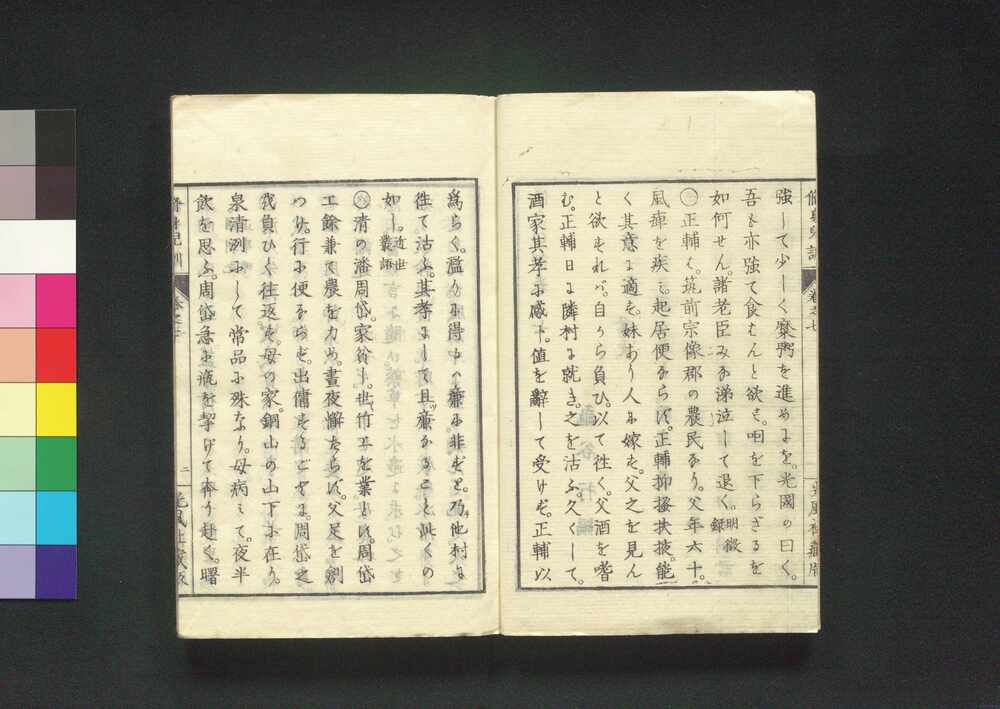 強して少しく饘粥を進めよを。光國の曰く。
吾も亦強て食せんと欲も。咽を下らざるを
如何せん。諸老臣みな涕泣して退く。明徴録
㊀正輔は。筑前宗像郡の農民なり。父年六十。
風痺を疾ミ。起居便ならず。正輔抑搔扶掖。能
く其意に適も。妹あり人に嫁も。父之を見ん
と欲もれバ。自から負ひ。以て徃く。父酒を嗜
む。正輔日に隣村に就き。之を沽ふ久くして。
酒家其孝に感し。値を辭して受けず。正輔以
爲らく。濫りに得るハ廉に非ずと。乃ち他村に
徃て沽ふ。其孝にして且ツ廉なること此くの
如し。近世叢語
清の潘周岱。家貧し。世竹工を業とす。周岱
工餘兼て農を力め。晝夜懈たらず。父足を創
つけ。行に便ならず。出傭もるごとに。周岱之
を負ひて徃返も。母の家。銅山の山下に在り。
泉清冽にして常品に殊なり。母病ミて。夜半
飲を思ふ。周岱急に瓶を挈げて奔り赴く。曙
修身兒訓
卷之七
二
光風社藏版